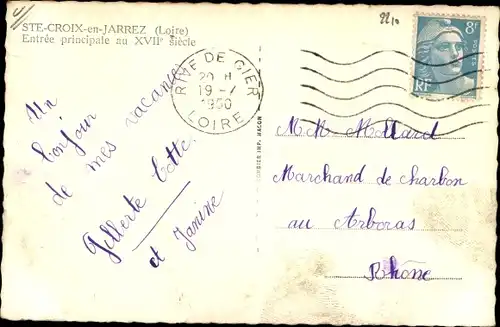 STE-CROIX-en-JARREZ (Loire)
Entrée principale au XVIIe siècle
Un
bonjour
de mes vacances
Gilberte Cotte
et Janine
RIVE DE GIER
20 H
19 - 7
1950
LOIRE
22 10
8F
RF
POSTES
Mr Mollard
Marchand de charbon
au Arboras
Rhône